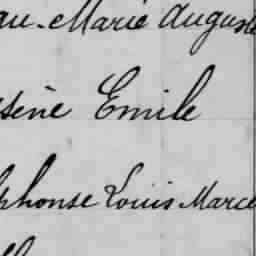 au-Marie Auguste
sène Emile
lphonse Louis Marce